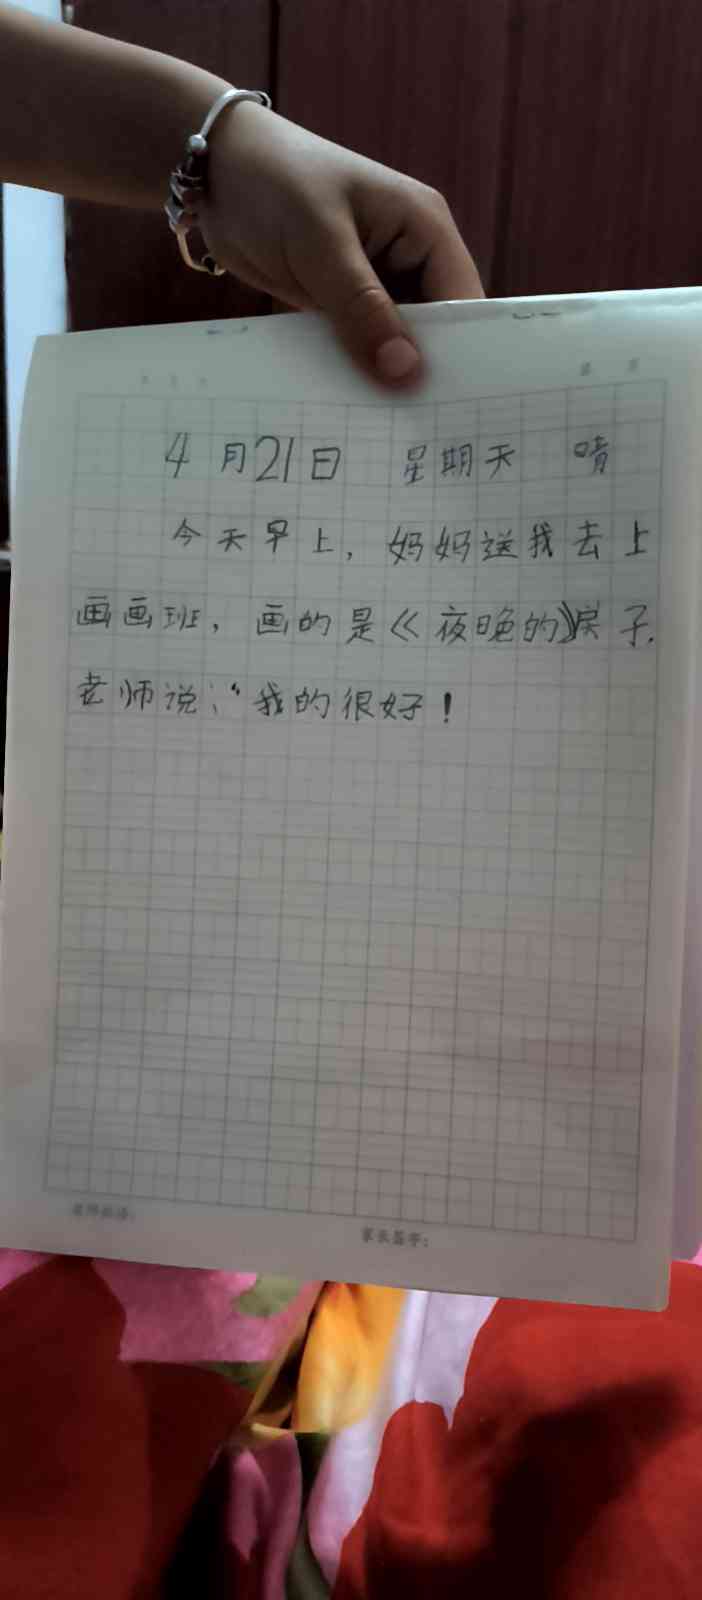 4月21日 星期天 晴
今天早上，妈妈送我去上
画画班，画的是《夜晚的》房子.
老师说：“我的很好！
老师批语：
家长签字：